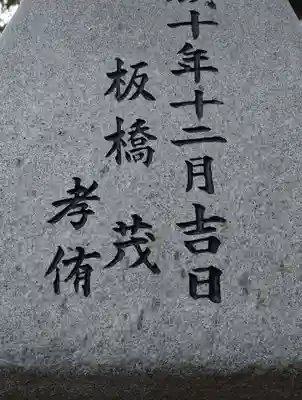 成十年十二月吉日
板橋茂
孝侑